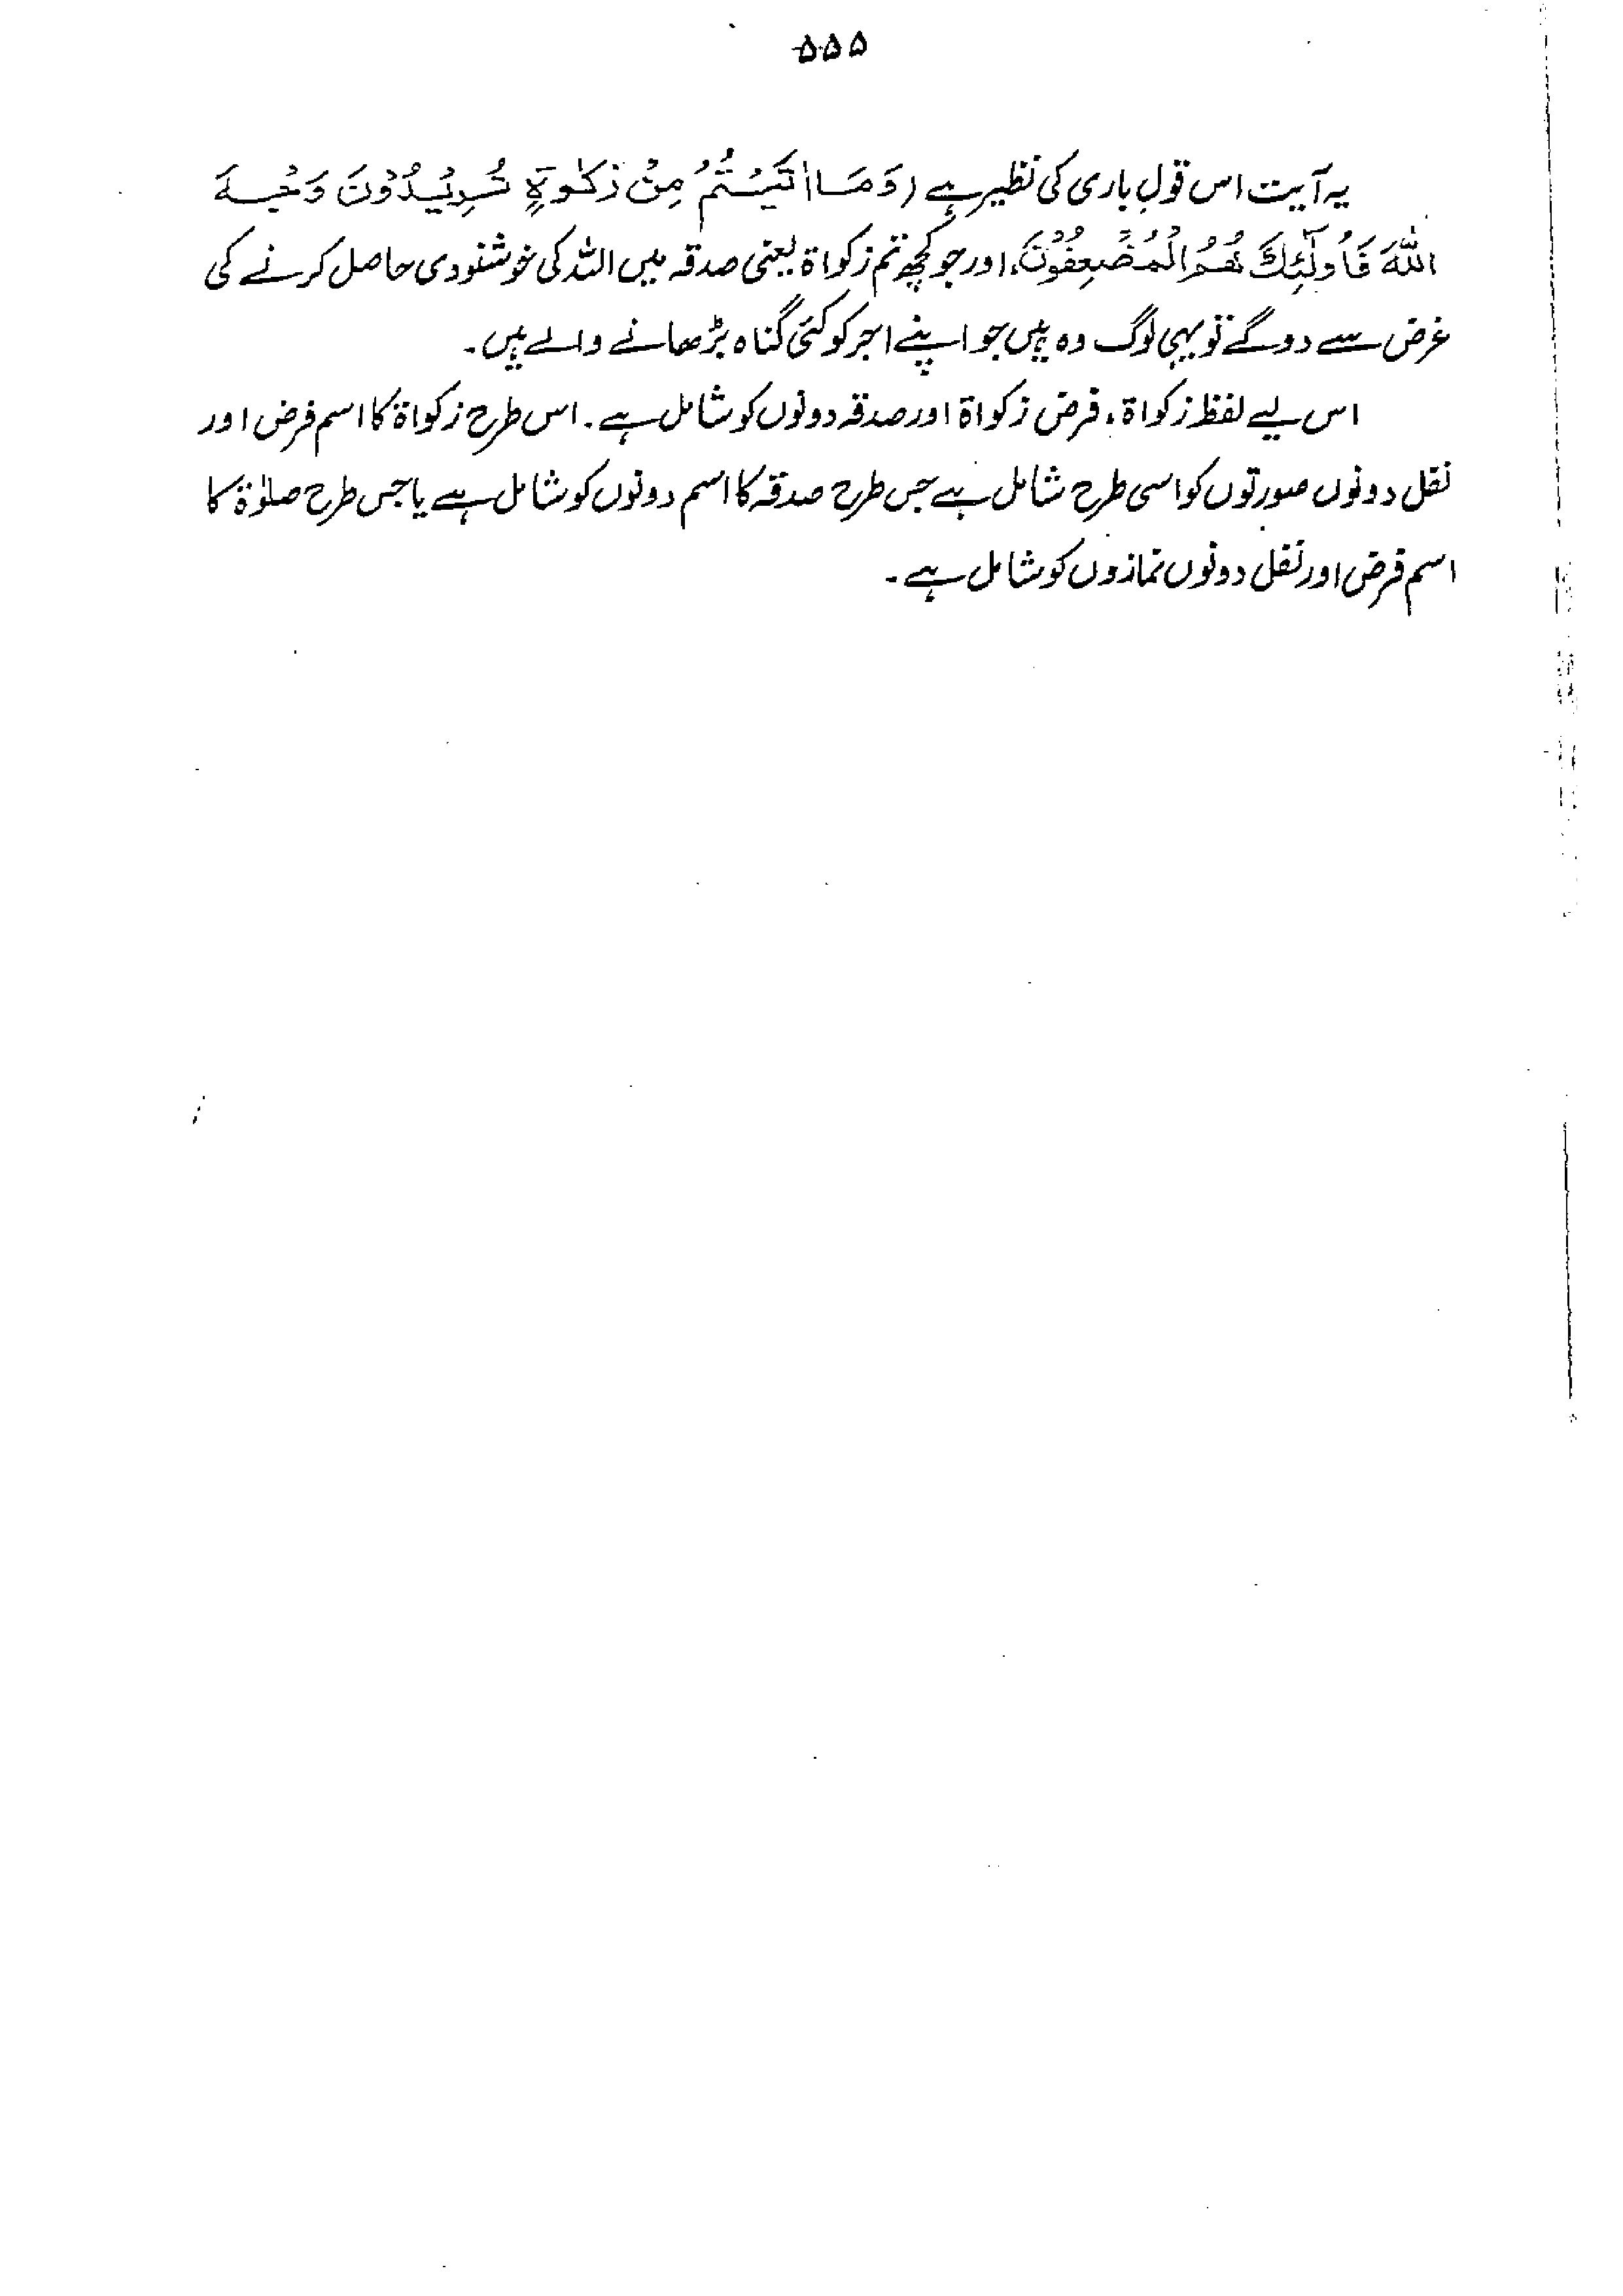 ۵۵۵
یہ آیت اس قولِ باری کی نظیر ہے (وَمَا اٰتَیْتُمْ مِنْ زَکٰوةٍ تُرِیْدُوْنَ وَجْهَ
اللّٰهِ فَاُولٰٓئِكَ هُمُ الْمُضْعِفُوْنَ، اور جو کچھ تم زکواۃ یعنی صدقہ میں اللہ کی خوشنودی حاصل کرنے کی
غرض سے دوگے تو یہی لوگ وہ ہیں جو اپنے اجر کو کئی گناہ بڑھانے والے ہیں۔
اس لیے لفظ زکواۃ، فرض زکواۃ اور صدقہ دونوں کو شامل ہے۔ اس طرح زکواۃ کا اسم فرض اور
نفل دونوں صورتوں کو اسی طرح شامل ہے جس طرح صدقہ کا اسم دونوں کو شامل ہے یا جس طرح صلوٰۃ کا
اسم فرض اور نفل دونوں نمازوں کو شامل ہے۔